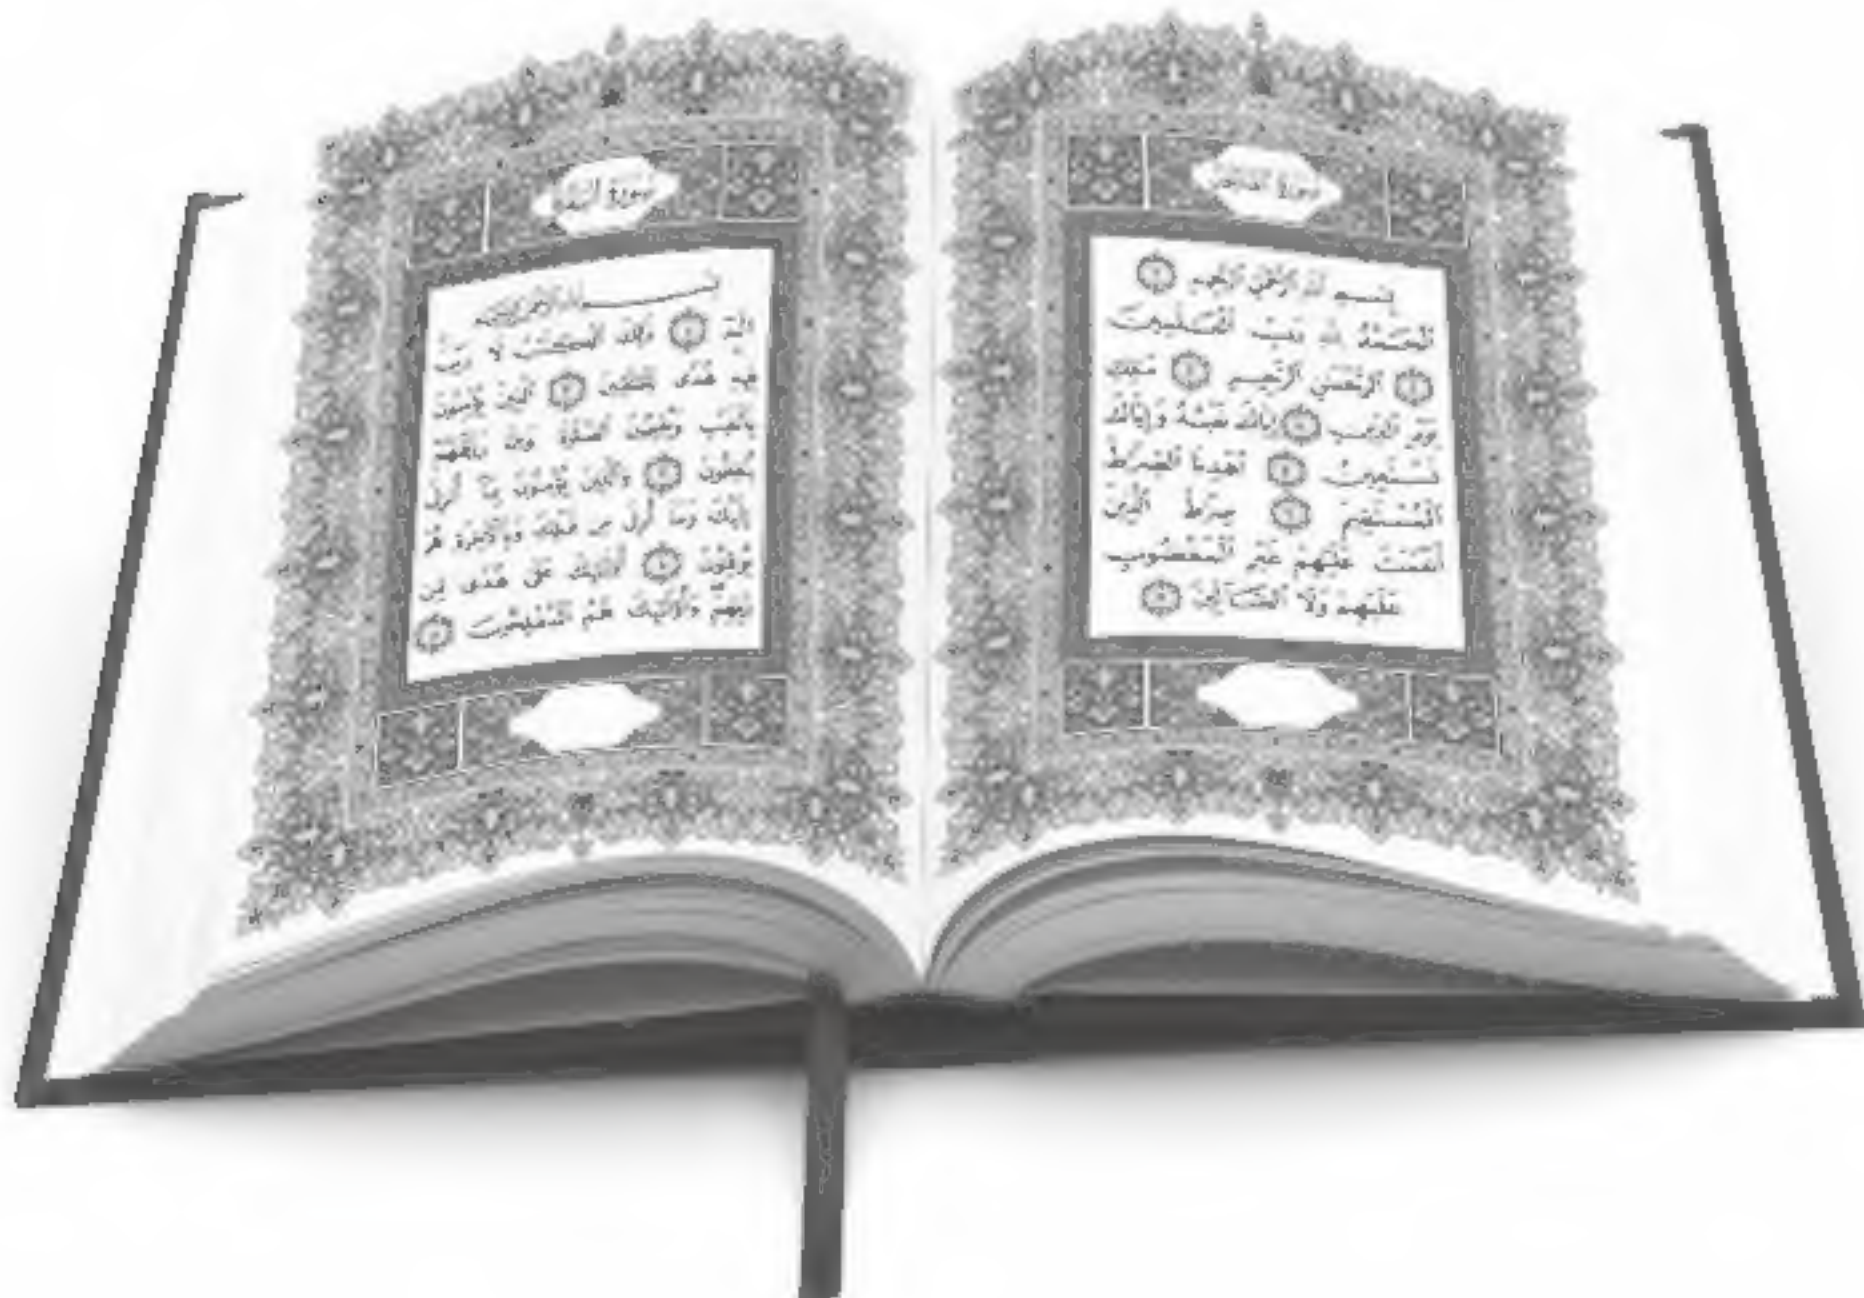 سورة الفاتحة
بِسْمِ اللَّهِ الرَّحْمَٰنِ الرَّحِيمِ ١
الْحَمْدُ لِلَّهِ رَبِّ الْعَالَمِينَ
٢ الرَّحْمَٰنِ الرَّحِيمِ ٣ مَالِكِ
يَوْمِ الدِّينِ ٤ إِيَّاكَ نَعْبُدُ وَإِيَّاكَ
نَسْتَعِينُ ٥ اهْدِنَا الصِّرَاطَ
الْمُسْتَقِيمَ ٦ صِرَاطَ الَّذِينَ
أَنْعَمْتَ عَلَيْهِمْ غَيْرِ الْمَغْضُوبِ
عَلَيْهِمْ وَلَا الضَّالِّينَ ٧
سورة البقرة
بِسْمِ اللَّهِ الرَّحْمَٰنِ الرَّحِيمِ
الم ١ ذَٰلِكَ الْكِتَابُ لَا رَيْبَ
فِيهِ هُدًى لِلْمُتَّقِينَ ٢ الَّذِينَ يُؤْمِنُونَ
بِالْغَيْبِ وَيُقِيمُونَ الصَّلَاةَ وَمِمَّا رَزَقْنَاهُمْ
يُنْفِقُونَ ٣ وَالَّذِينَ يُؤْمِنُونَ بِمَا أُنْزِلَ
إِلَيْكَ وَمَا أُنْزِلَ مِنْ قَبْلِكَ وَبِالْآخِرَةِ هُمْ
يُوقِنُونَ ٤ أُولَٰئِكَ عَلَىٰ هُدًى مِنْ
رَبِّهِمْ وَأُولَٰئِكَ هُمُ الْمُفْلِحُونَ ٥